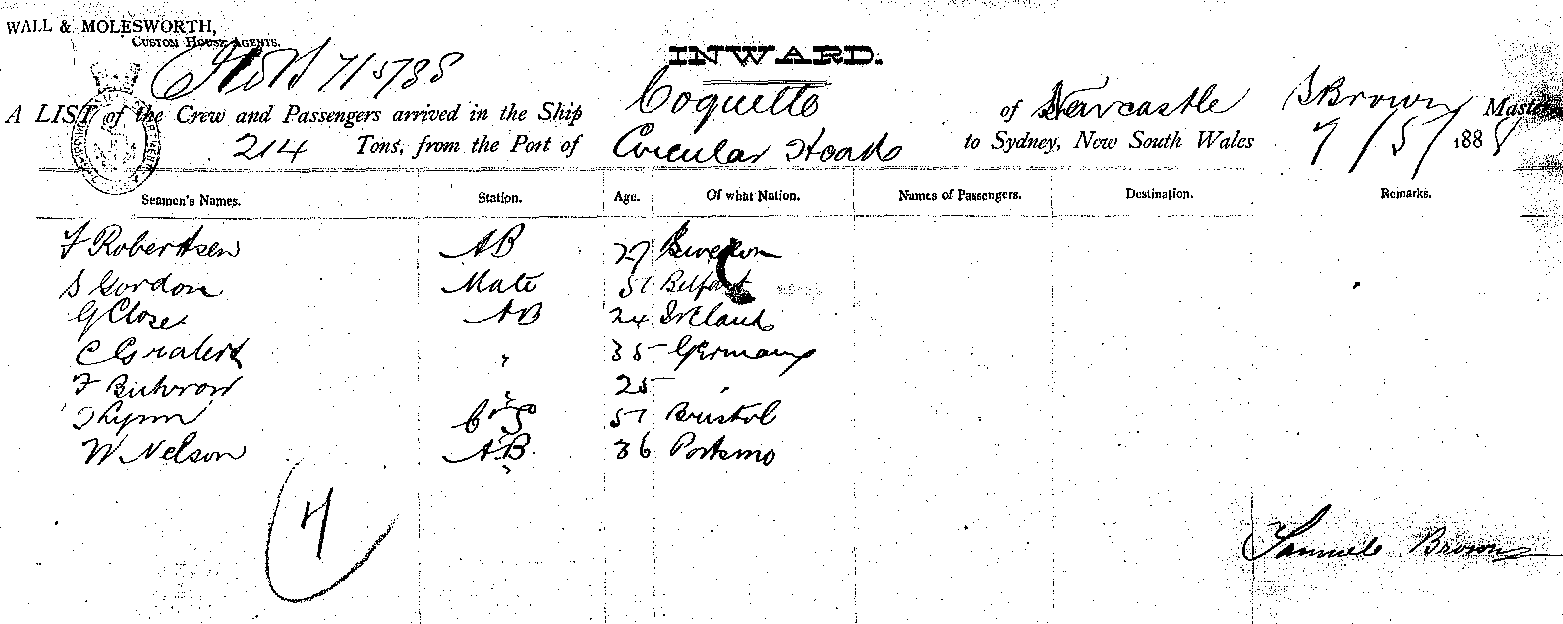 WALL & MOLESWORTH,
CUSTOM HOUSE AGENTS.
7/5/88
INWARD.
A LIST of the Crew and Passengers arrived in the Ship Coquette of Newcastle S Brown Master
214 Tons, from the Port of Circular Head to Sydney, New South Wales 7/5/1888
Seamen's Names. Station. Age. Of what Nation. Names of Passengers. Destination. Remarks.
F Robertsen AB 27 Sweden
S Gordon Mate 51 Belfast
G Close AB 24 Ireland
C " 35 Germany
F 25 "
T Lynn C & S 57 Bristol
W Nelson AB 36 Portsmo
Samuel Brown